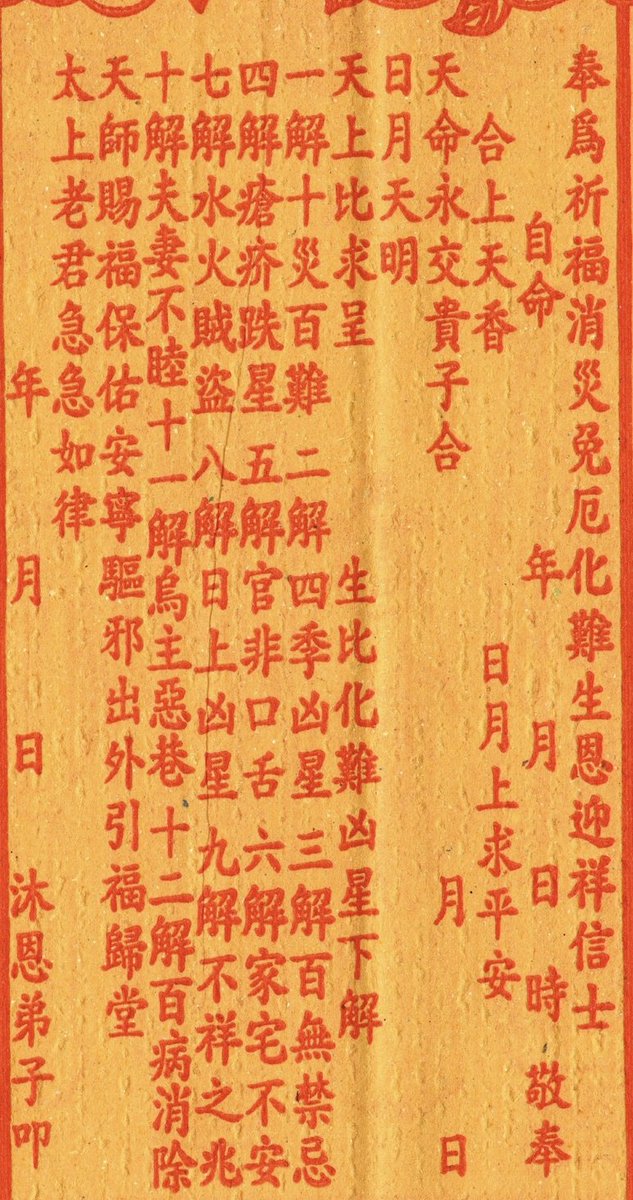 奉爲祈福消災免厄化難生恩迎祥信士
自命 年 月 日 時 敬奉
合上天香 日月上求平安
天命永交貴子合 月 日
日月天明
天上比求呈 生比化難凶星下解
一解十災百難 二解四季凶星 三解百無禁忌
四解瘡疥跌星 五解官非口舌 六解家宅不安
七解水火賊盜 八解日上凶星 九解不祥之兆
十解夫妻不睦十一解烏主惡巷 十二解百病消除
天師賜福保佑安寧驅邪出外引福歸堂
太上老君急急如律
年 月 日 沐恩弟子叩